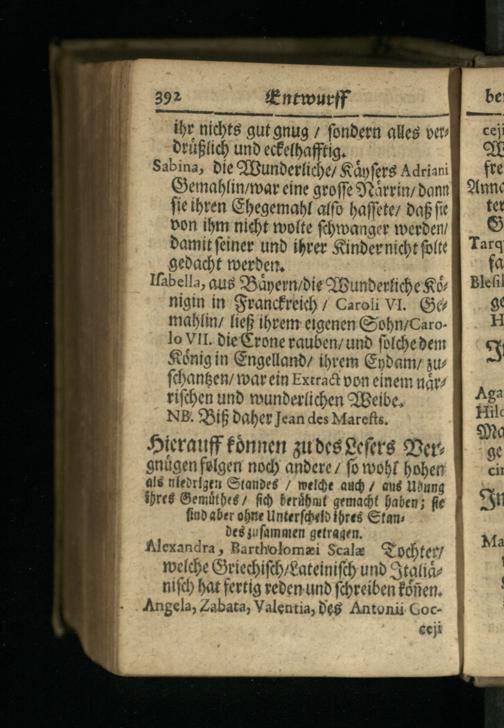 392 Entwurff
ihr nichts gut gnug / sondern alles ver-
drüßlich und eckelhafftig.
Sabina, die Wunderliche / Käysers Adriani
Gemahlin / war eine grosse Närrin / dann
sie ihren Ehegemahl also hassete / daß sie
von ihm nicht wolte schwanger werden /
damit seiner und ihrer Kinder nicht solte
gedacht werden.
Isabella, aus Bäyern / die Wunderliche Kö-
nigin in Franckreich / Caroli VI. Ge-
mahlin / ließ ihrem eigenen Sohn / Caro-
lo VII. die Crone rauben / und solche dem
König in Engelland / ihrem Eydam / zu-
schantzen / war ein Extract von einem när-
rischen und wunderlichen Weibe.
NB. Biß daher Jean des Marests.
Hierauff können zu des Lesers Ver-
gnügen folgen noch andere / so wohl hohen
als niedrigen Standes / welche auch / aus Ubung
ihres Gemüthes / sich berühmt gemacht haben; sie
sind aber ohne Unterscheid ihres Stan-
des zusammen getragen.
Alexandra, Bartholomæi Scalæ Tochter /
welche Griechisch / Lateinisch und Italiä-
nisch hat fertig reden und schreiben köñen.
Angela, Zabata, Valentia, des Antonii Coc-
ceji
be
ceji
fre
Anna
ter
G
Tarq
fa
Blesil
ge
H
Aga
Hild
Ma
ge
ein
In
Ma